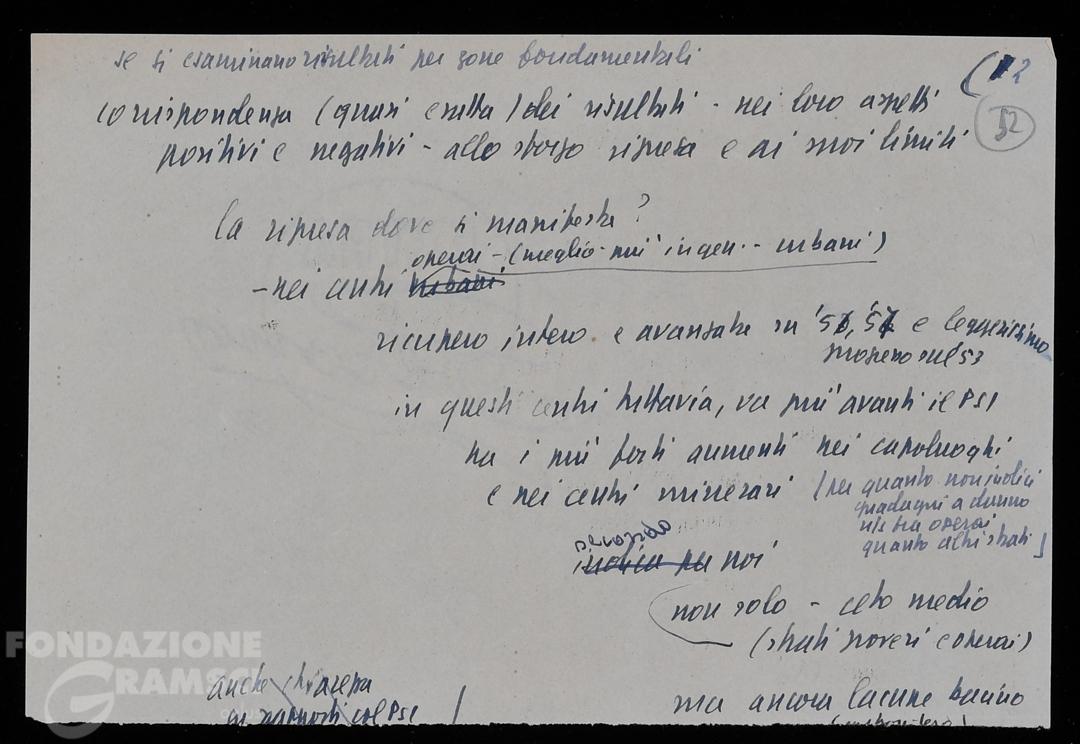 se si esaminano risultati per zone fondamentali
(12
52
corrispondenza (quasi esatta) dei risultati - nei loro aspetti
positivi e negativi - allo sforzo ripresa e ai suoi limiti
la ripresa dove si manifesta?
operai - (meglio - più in gen. - urbani)
- nei centri urbani
ricupero intero e avanzate su '56, '57 e leggerissimo
sul 53
in questi centri tuttavia, va più avanti il PSI
ha i più forti aumenti nei capoluoghi
e nei centri minerari (per quanto non indichi
guadagni a danno
ns tra operai
quanto altri strati)
indica per noi
non solo - ceto medio
(strati poveri e operai)
anche chiarezza
rapporti col PSI
ma ancora lacune bacino
FONDAZIONE
GRAMSCI